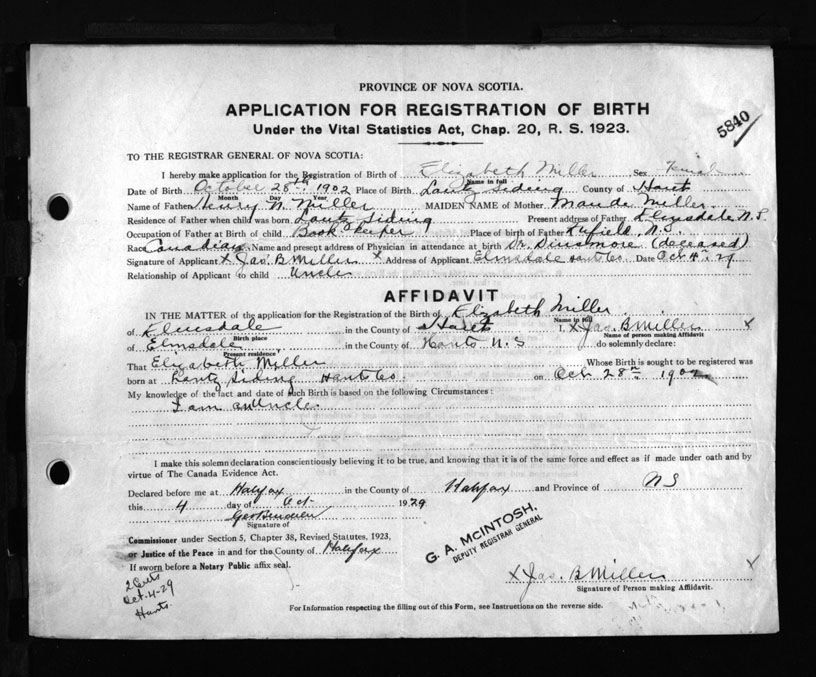 PROVINCE OF NOVA SCOTIA.
APPLICATION FOR REGISTRATION OF BIRTH
Under the Vital Statistics Act, Chap. 20, R. S. 1923.
5840
TO THE REGISTRAR GENERAL OF NOVA SCOTIA:
I hereby make application for the Registration of Birth of Elizabeth Miller Sex Female
Name in full
Date of Birth October 28th 1902 Place of Birth Lantz Siding County of Hants
Month Day Year
Name of Father Henry N. Miller MAIDEN NAME of Mother Maude Miller
Residence of Father when child was born Lantz Siding Present address of Father Elmsdale N.S
Occupation of Father at Birth of child Book Keeper Place of birth of Father Enfield N.S.
Race Canadian Name and present address of Physician in attendance at birth Dr. Dinsmore (deceased)
Signature of Applicant X Jas. B Miller X Address of Applicant Elmsdale Hants Co. Date Oct 4th 29
Relationship of Applicant to child Uncle
AFFIDAVIT
IN THE MATTER of the application for the Registration of the Birth of Elizabeth Miller
Name in full
of Elmsdale in the County of Hants I, X Jas. B Miller X
Birth place Name of person making Affidavit
of Elmsdale in the County of Hants N.S do solemnly declare:
Present residence
That Elizabeth Miller Whose Birth is sought to be registered was
born at Lantz Siding Hants Co. on Oct 28th 1902
My knowledge of the fact and date of such Birth is based on the following Circumstances:
I am an Uncle.
I make this solemn declaration conscientiously believing it to be true, and knowing that it is of the same force and effect as if made under oath and by
virtue of The Canada Evidence Act.
Declared before me at Halifax in the County of Halifax and Province of NS
this 4 day of Oct 1929
Signature of
Commissioner under Section 5, Chapter 38, Revised Statutes, 1923,
or Justice of the Peace in and for the County of Halifax
If sworn before a Notary Public affix seal.
G. A. McINTOSH,
DEPUTY REGISTRAR GENERAL
Oct-4-29
Hants.
X Jas. B Miller X
Signature of Person making Affidavit.
For Information respecting the filling out of this Form, see Instructions on the reverse side.